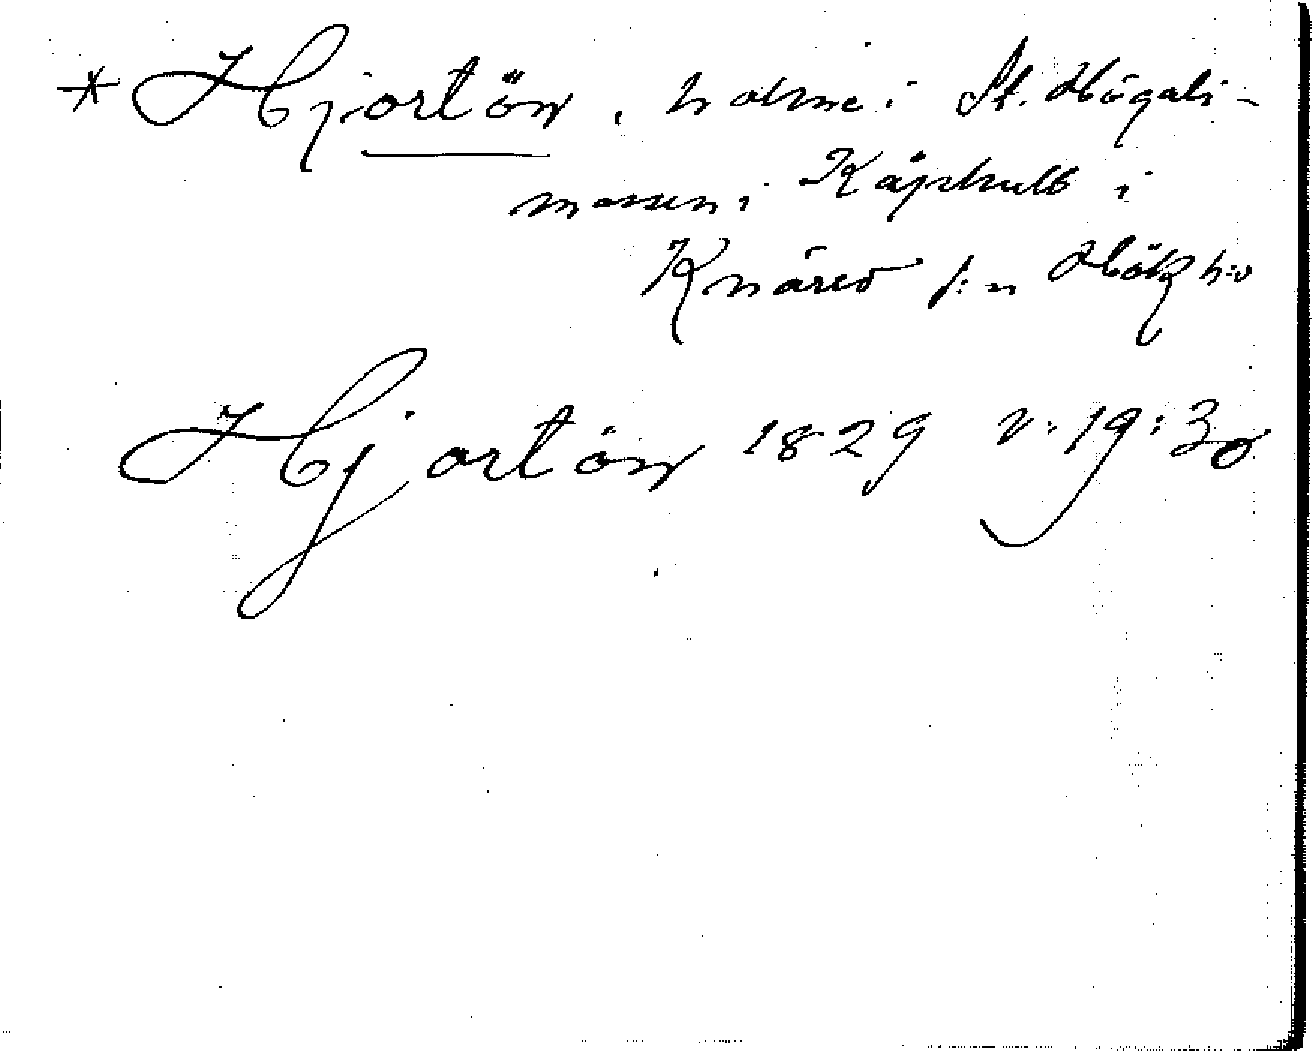 * Hjortön, holme i St. Högali-
mossen i Kåphult i
Knäred s:n Höks h:d
Hjortön 1829 v: 19: 30